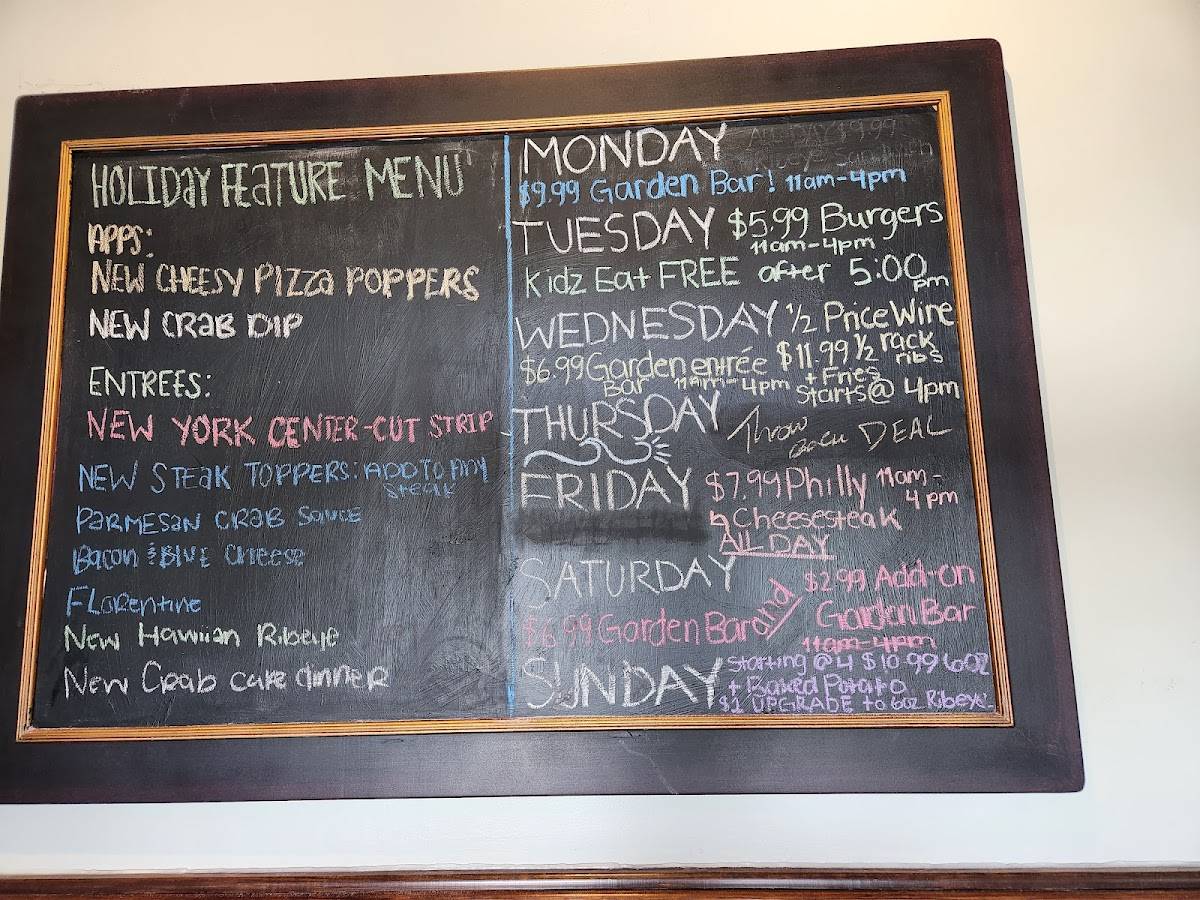 HOLIDAY FEATURE MENU
APPS:
NEW CHEESY PIZZA POPPERS
NEW CRAB DIP
ENTREES:
NEW YORK CENTER-CUT STRIP
NEW STEAK TOPPERS: ADD TO ANY
STEAK
PARMESAN CRAB SAUCE
Bacon & BLUE Cheese
FLorentine
New Hawiian Ribeye
New Crab cake dinner
MONDAY ALL DAY $9.99
Ribeye Sandwich
$9.99 Garden Bar! 11am-4pm
TUESDAY $5.99 Burgers
11am-4pm
Kidz Eat FREE after 5:00pm
WEDNESDAY 1/2 Price Wine
$6.99 Garden entrée
Bar 11am-4pm
$11.99 1/2 rack
ribs
+ Fries
Starts @ 4pm
THURSDAY Throw
Back DEAL
FRIDAY $7.99 Philly 11am-
4pm
Cheesesteak
ALL DAY
SATURDAY
$6.99 Garden Bar and
$2.99 Add-on
Garden Bar
11am-4pm
SUNDAY Starting @ 4 $10.99 6oz
+ Baked Potato
$1 UPGRADE to 6oz Ribeye